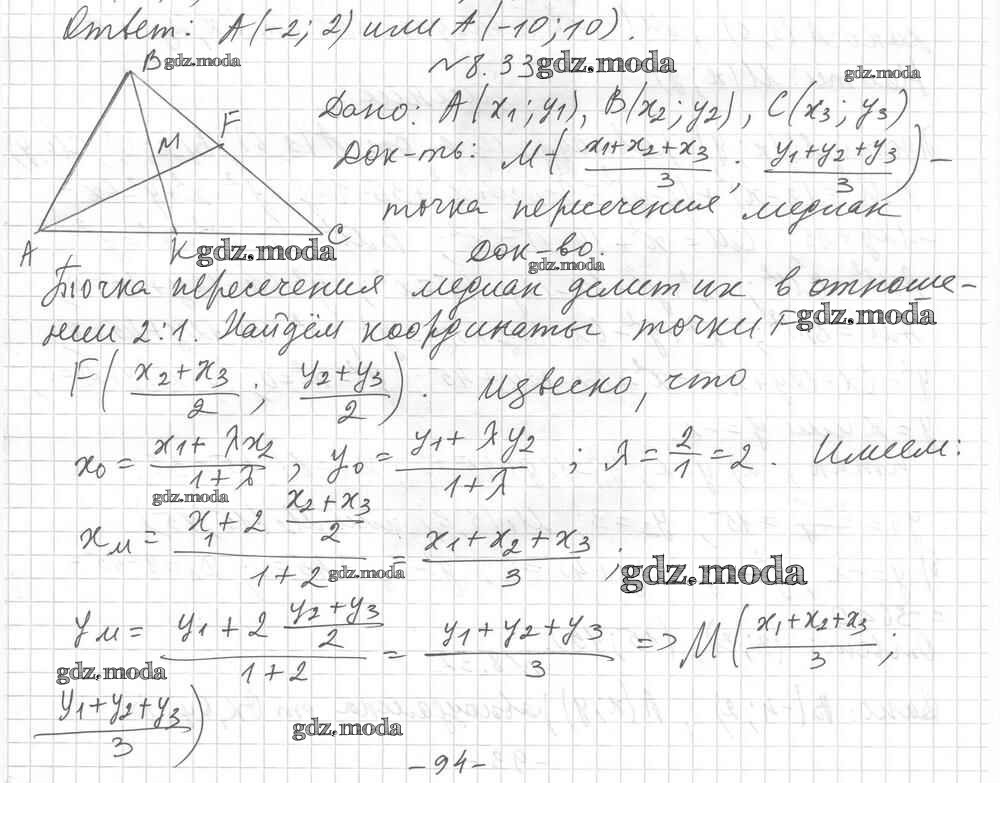 Ответ: A(-2; 2) или A(-10; 10).
B gdz.moda
№8.33 gdz.moda
gdz.moda
F
M
A
K gdz.moda
C
Дано: A(x1; y1), B(x2; y2), C(x3; y3)
Док-ть: M-(x1+x2+x3/3; y1+y2+y3/3) -
точка пересечения медиан
Док-во.
gdz.moda
Точка пересечения медиан делит их в отноше-
нии 2:1. Найдём координаты точки F gdz.moda
F(x2+x3/2; y2+y3/2). Извеско, что
x0 = x1+λx2/1+λ; y0 = y1+λy2/1+λ; λ = 2/1 = 2. Имеем:
gdz.moda
xM = x1+2 x2+x3/2 / 1+2 = x1+x2+x3/3;
gdz.moda
gdz.moda
yM = y1+2 y2+y3/2 / 1+2 = y1+y2+y3/3 => M(x1+x2+x3/3;
gdz.moda
y1+y2+y3/3)
gdz.moda
-94-